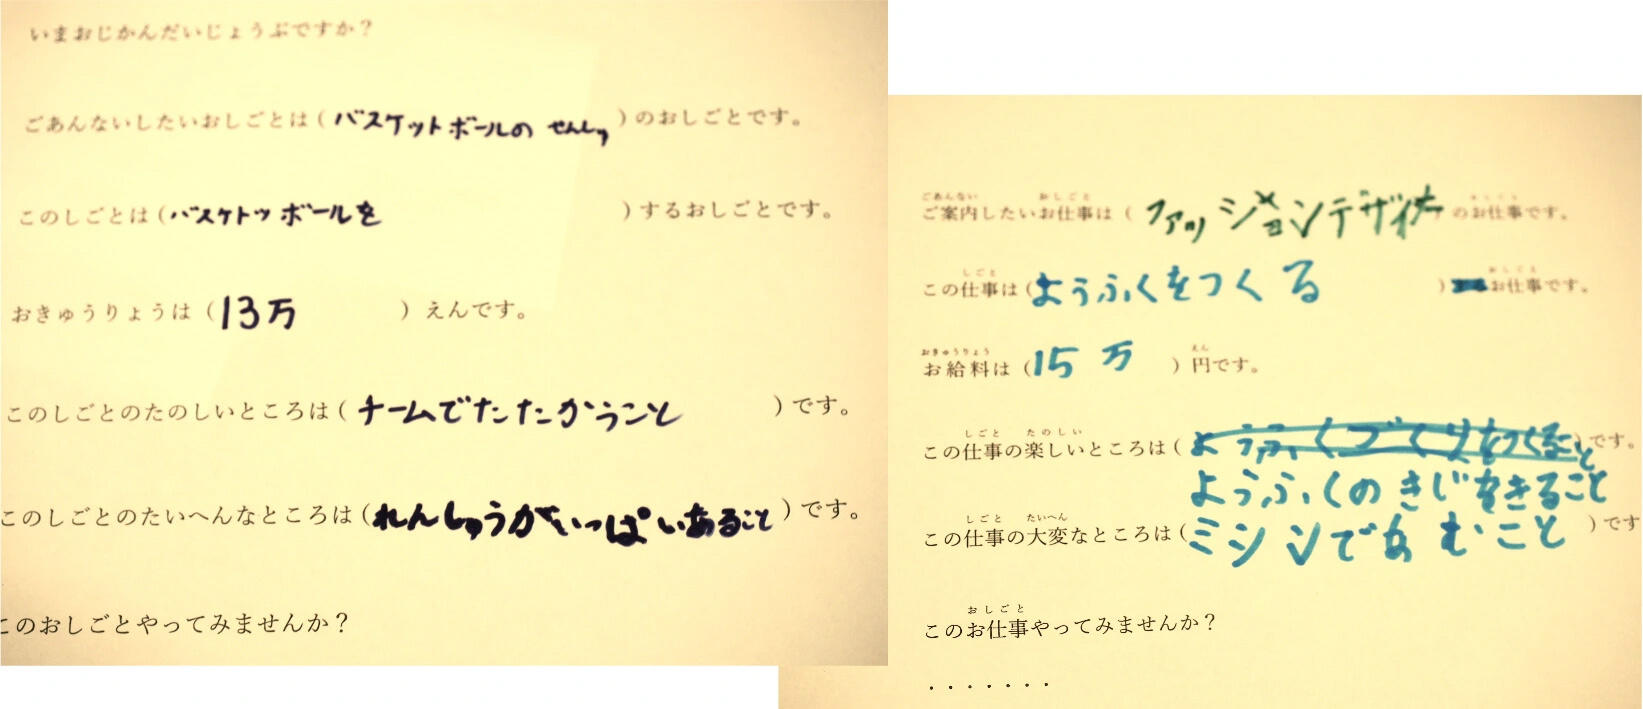 いまおじかんだいじょうぶですか？
ごあんないしたいおしごとは（バスケットボールのせんしゅ）のおしごとです。
このしごとは（バスケトッボールを）するおしごとです。
おきゅうりょうは（13万）えんです。
このしごとのたのしいところは（チームでたたかうこと）です。
このしごとのたいへんなところは（れんしゅうがいっぱいあること）です。
このおしごとやってみませんか？
ごあんない おしごと おしごと
ご案内したいお仕事は（ファッションデザイナーのお仕事です。
しごと おしごと
この仕事は（ようふくをつくる）お仕事です。
おきゅうりょう えん
お給料は（15万）円です。
しごと たのしい
この仕事の楽しいところは（ようふくづくりをつくること）です。
ようふくのきじをきること
しごと たいへん
この仕事の大変なところは（ミシンであむこと）です
おしごと
このお仕事やってみませんか？
・・・・・・・